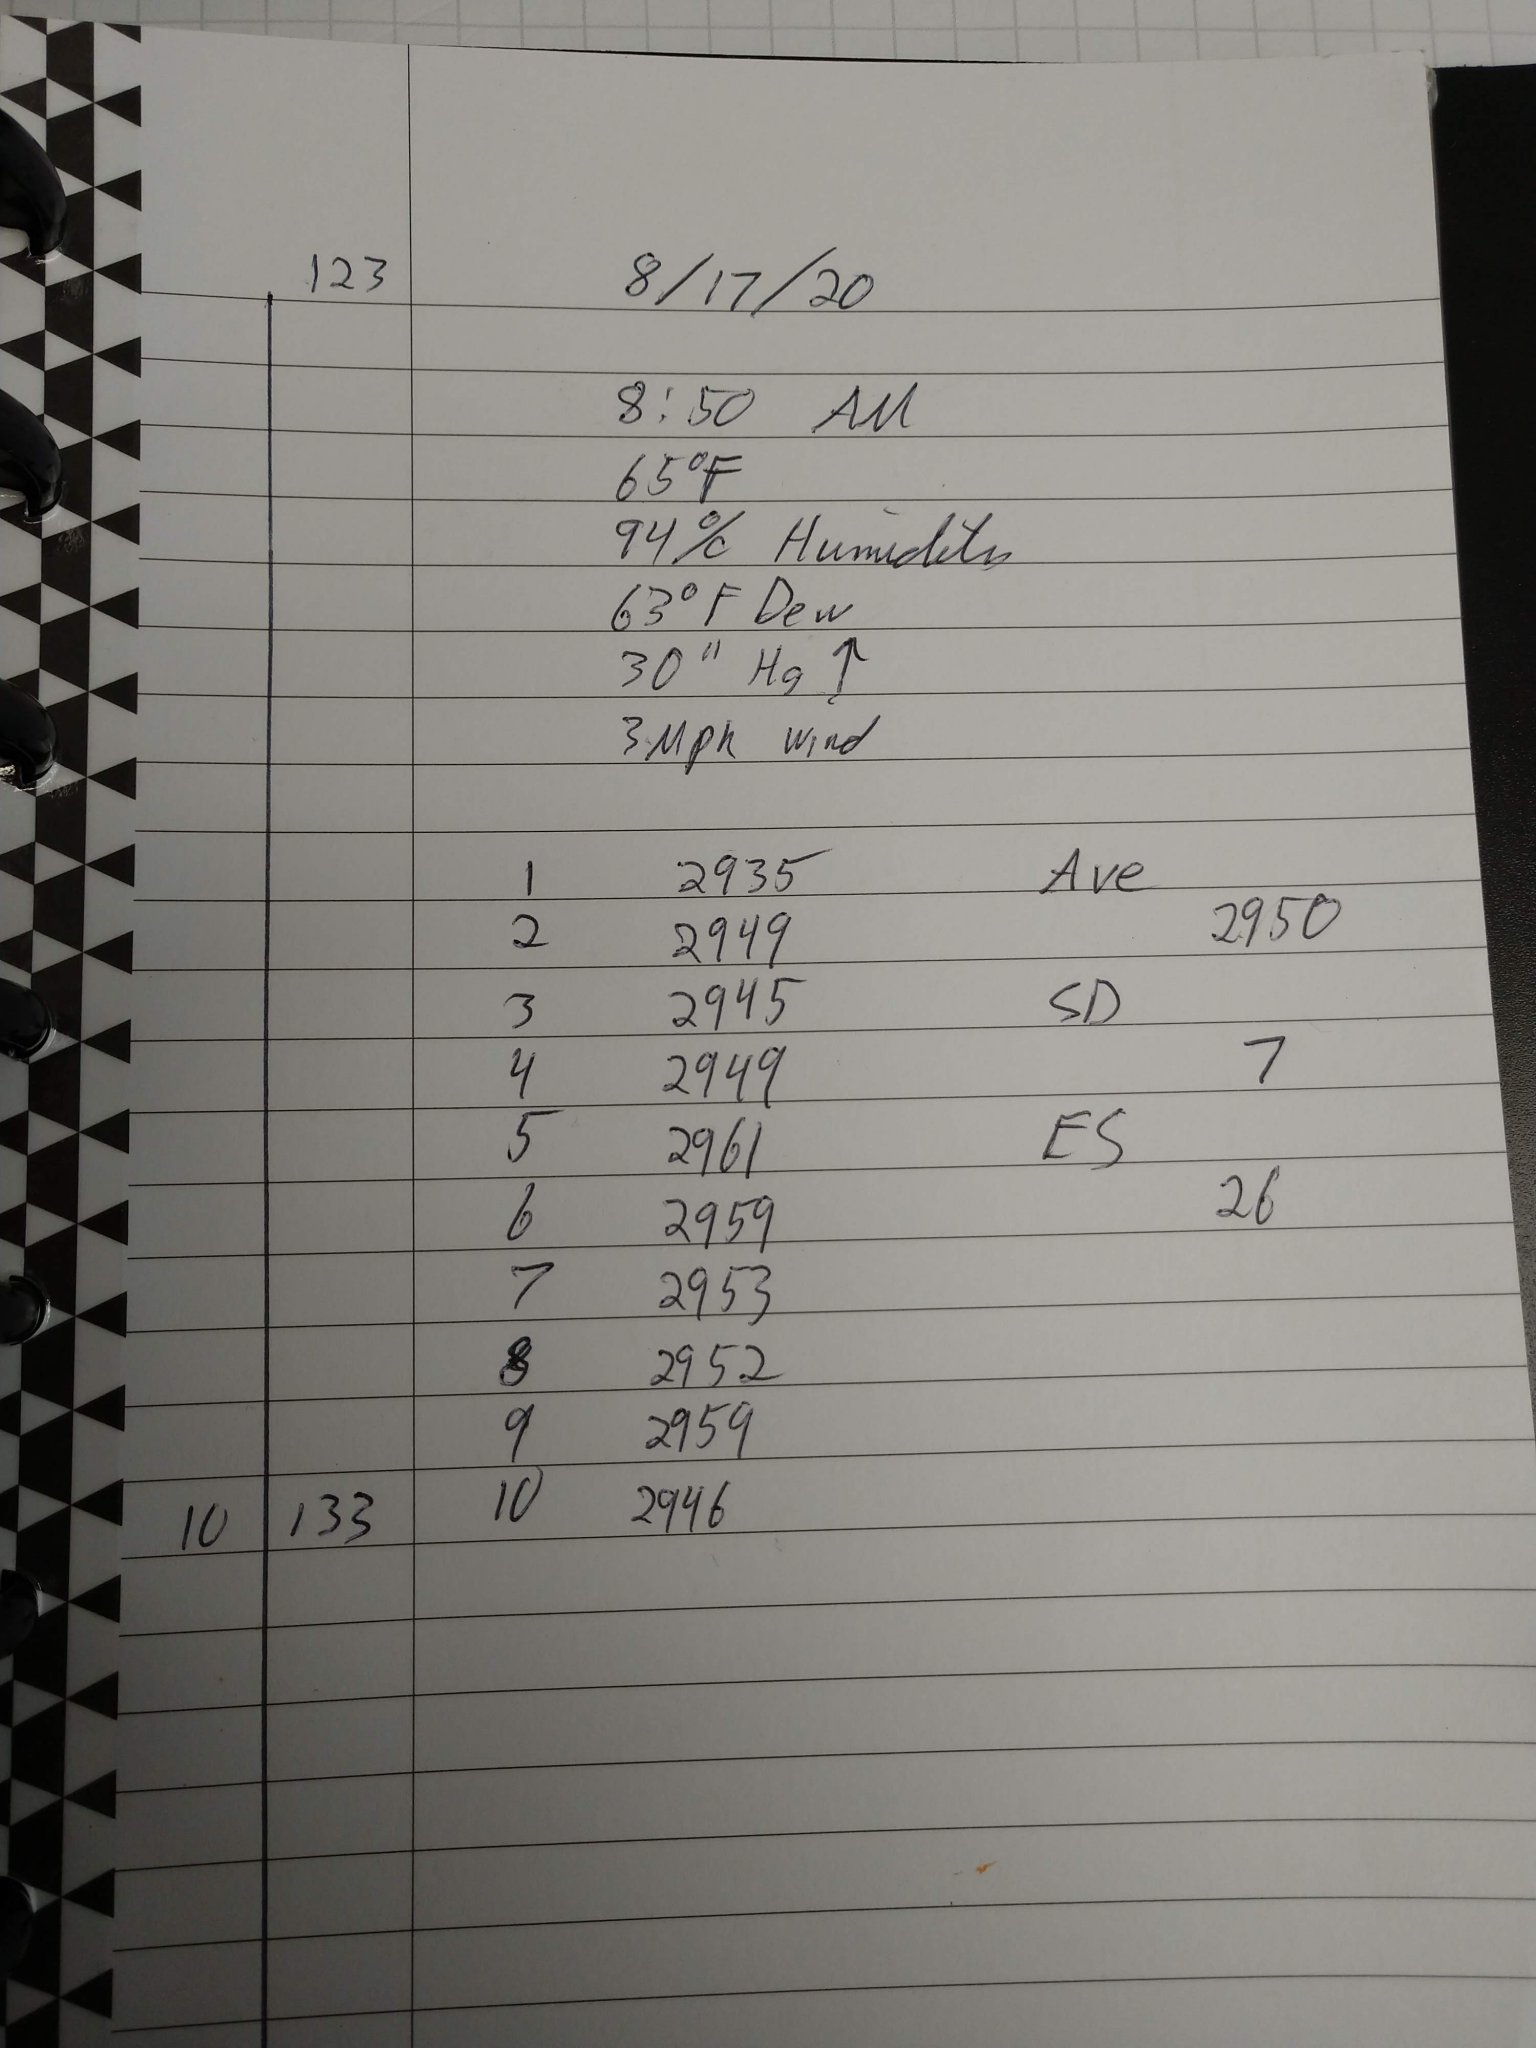 123 8/17/20
8:50 AM
65°F
94% Humidity
63°F Dew
30" Hg ↑
3 Mph wind
1 2935 Ave
2 2949 2950
3 2945 SD
4 2949 7
5 2961 ES
6 2959 26
7 2953
8 2952
9 2959
10 133 10 2946